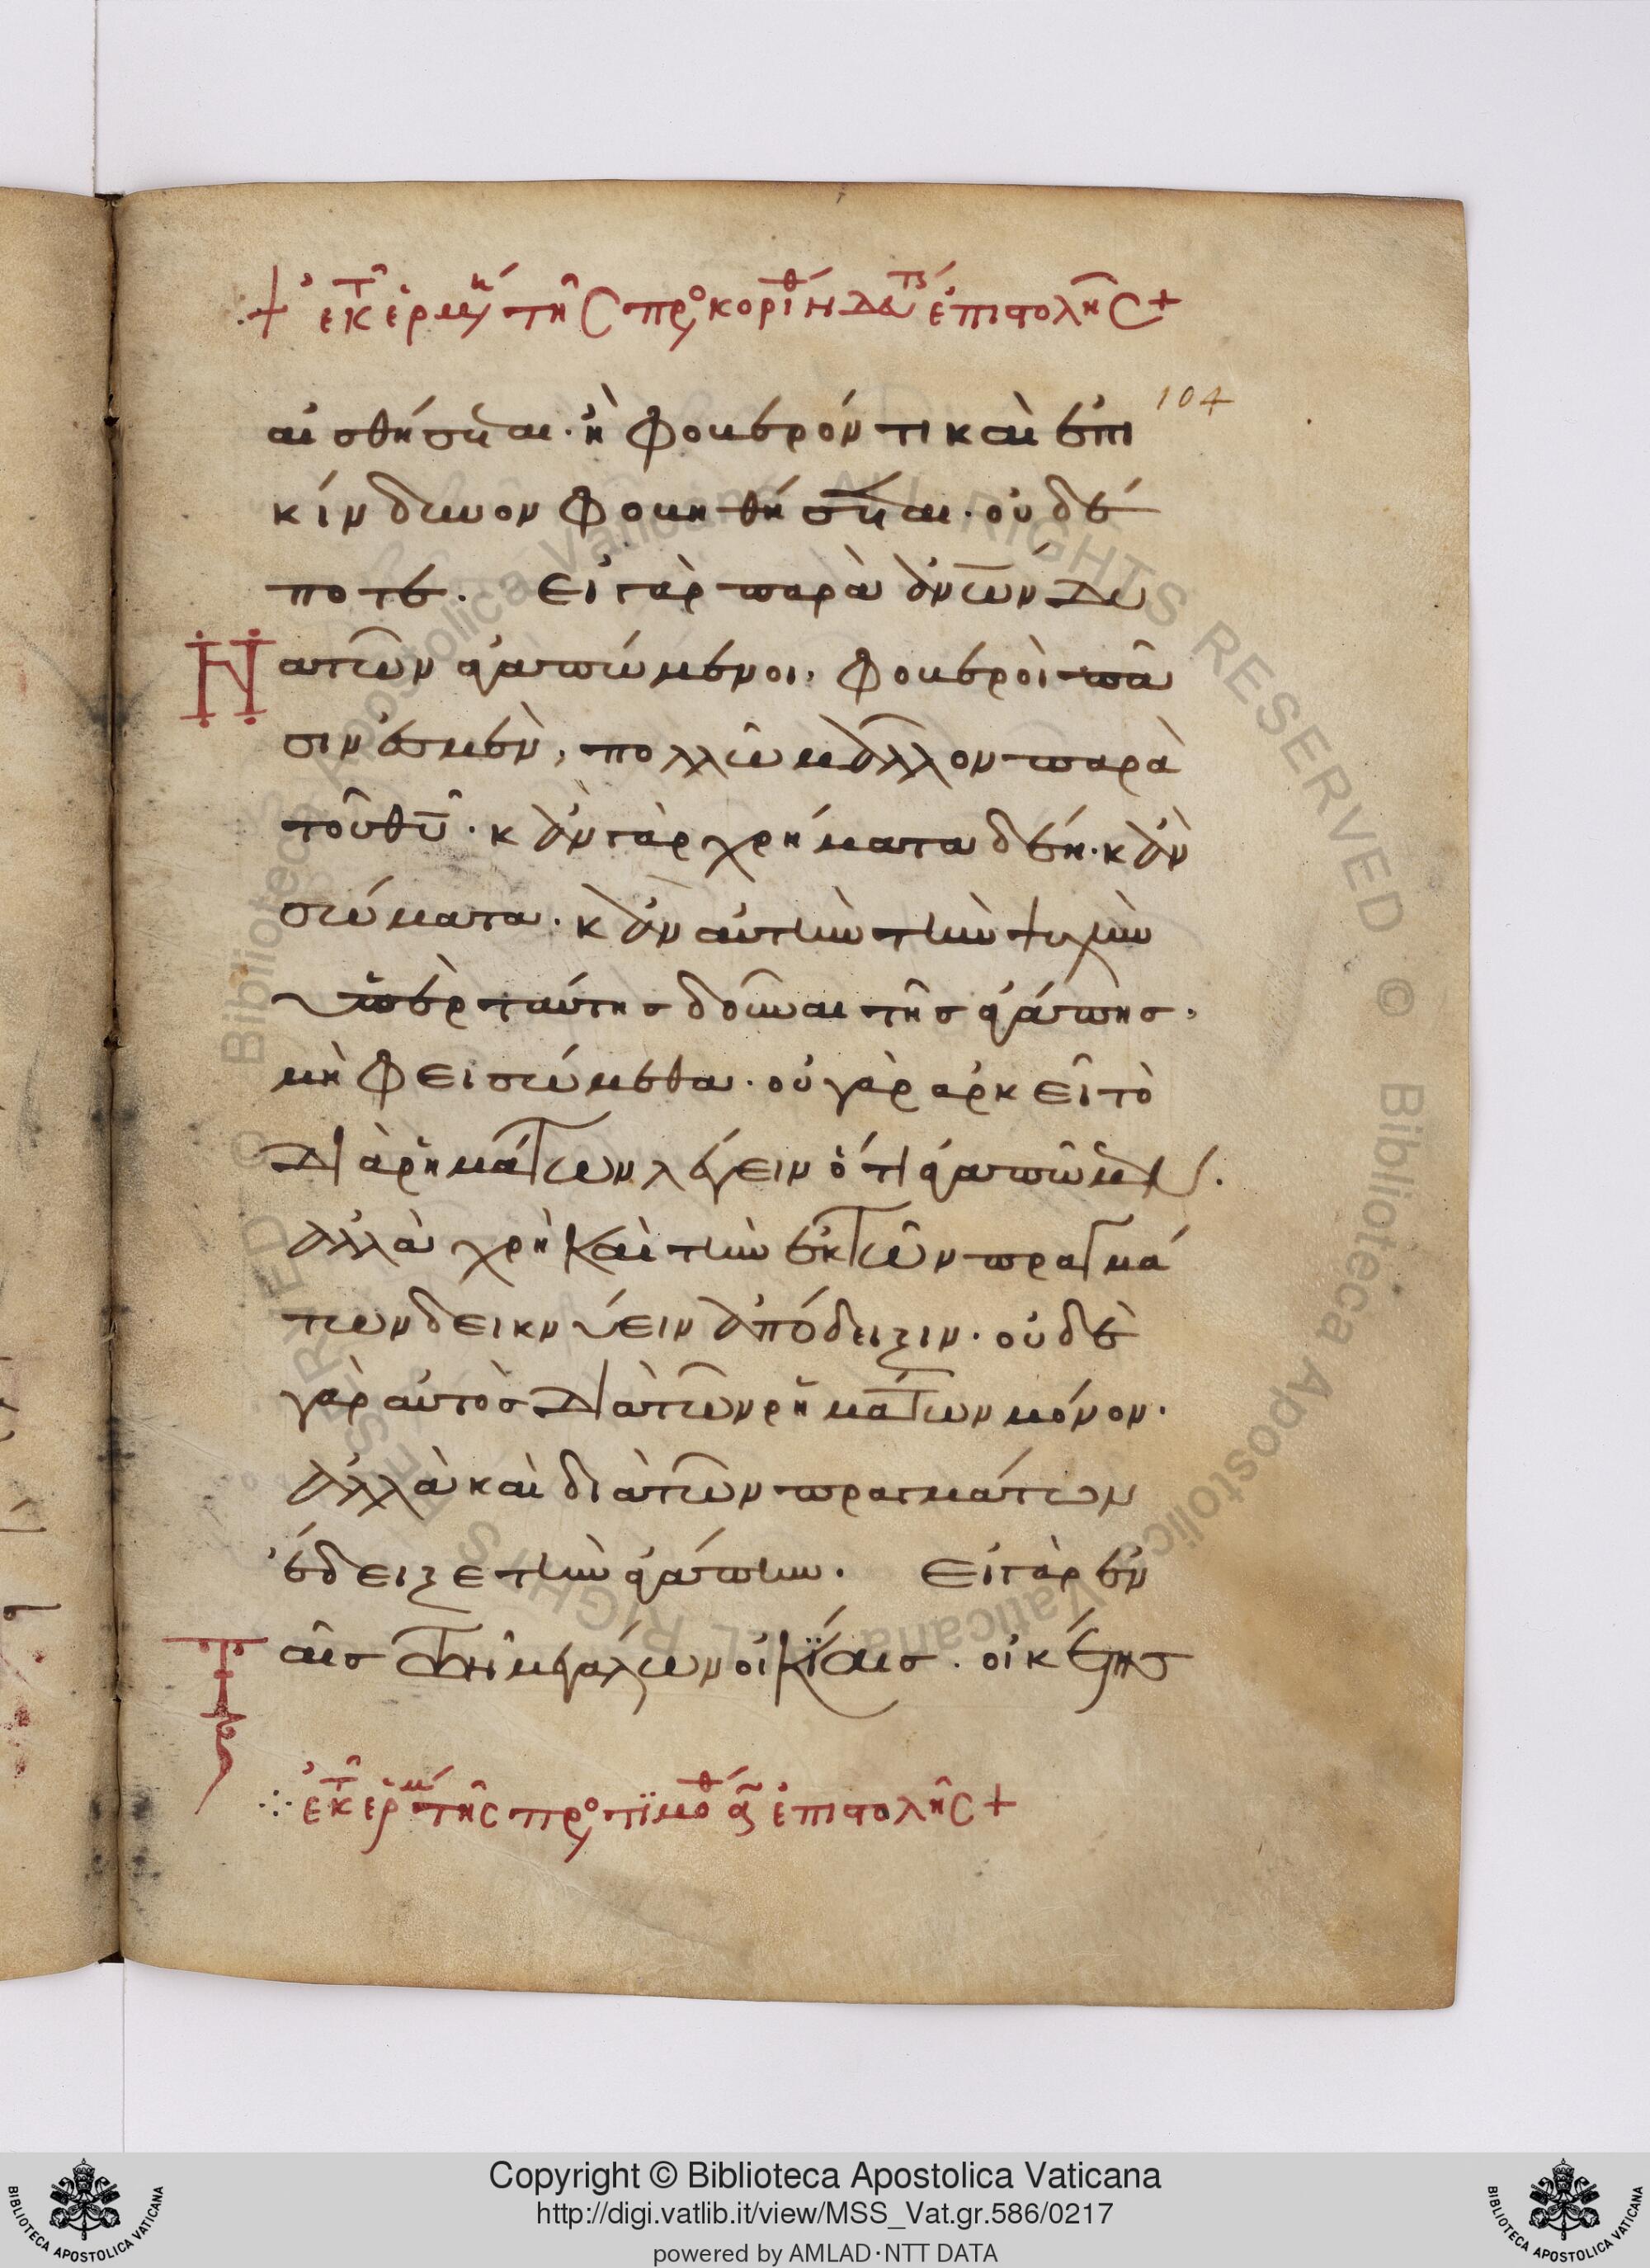 + ἐκ τ ἑρμην τῆς πρ κορινθ δευτ ἐπιστολῆς +
104
αἰσθήσεται. ἢ φοβερόν τι καὶ ἐπι
κίνδυνον φοβηθήσεται. οὐδέ
ποτε. Εἰ γὰρ παρὰ ἀν̅ων̅ δυ
Η
νατῶν ἀγαπώμενοι, φοβεροὶ πᾶ
σιν ἐσμὲν, πολλῶ μᾶλλον παρὰ
τοῦ θῦ. κἂν γὰρ χρήματα δέη. κἂν
σώματα. κἂν αὐτὴν τὴν ψυχὴν
ὑπὲρ ταύτης δοῦναι τῆς ἀγάπης.
μὴ φεισώμεθα. οὐ γὰρ ἀρκεῖ τὸ
διὰ ῥημάτων λέγειν ὅτι ἀγαπῶμεν.
ἀλλὰ χρὴ καὶ τὴν ἐκ τῶν πραγμά
των δεικνύειν ἀπόδειξιν. οὐδὲ
γὰρ αὐτὸς διὰ τῶν ῥημάτων μόνον.
ἀλλὰ καὶ διὰ τῶν πραγμάτων
ἔδειξε τὴν ἀγάπην. Εἰ γὰρ ἐν
Τ
αῖς τῶν μεγάλων οἰκίαις. οἰκέτης
ἐκ τ ἑρμ τῆς πρ τιμοθ α ἐπιστολῆς +
Copyright © Biblioteca Apostolica Vaticana
http://digi.vatlib.it/view/MSS_Vat.gr.586/0217
powered by AMLAD·NTT DATA
BIBLIOTECA APOSTOLICA VATICANA
BIBLIOTECA APOSTOLICA VATICANA
© Biblioteca Apostolica Vaticana ALL RIGHTS RESERVED © Biblioteca Apostolica Vaticana ALL RIGHTS RESERVED